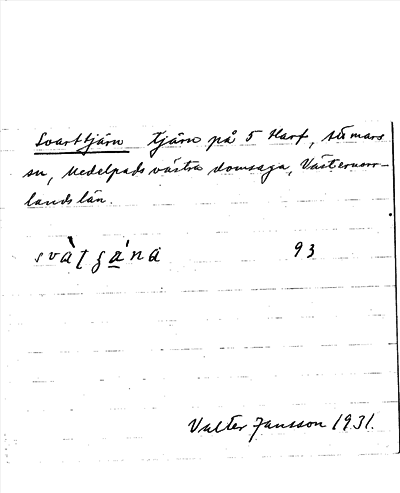 Svarttjärn tjärn på 5 Harf, Stumars
sn, Medelpads västra domsaga, Västernorr-
lands län.
svàtʂána 93
Valter Jansson 1931.